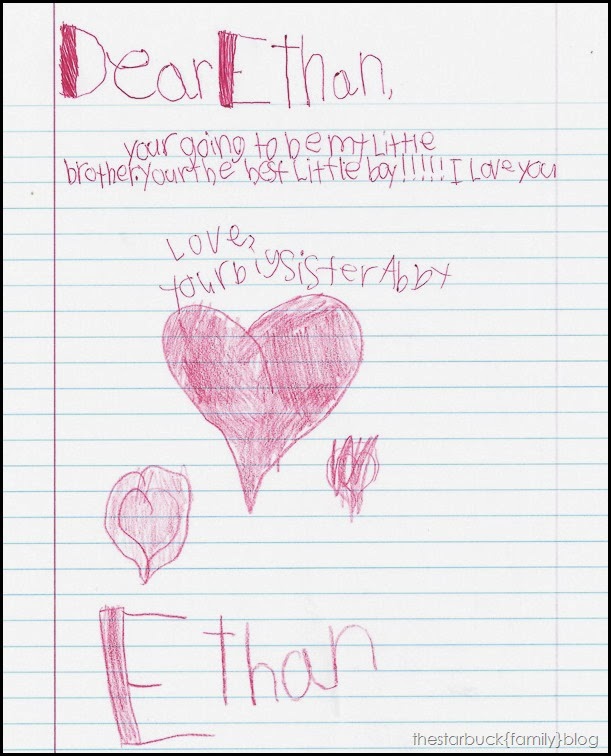 Dear Ethan,
your going to be my Little
brother. your the best Little boy!!!!! I Love you
Love,
your big sister Abby
Ethan
thestarbuck{family}blog